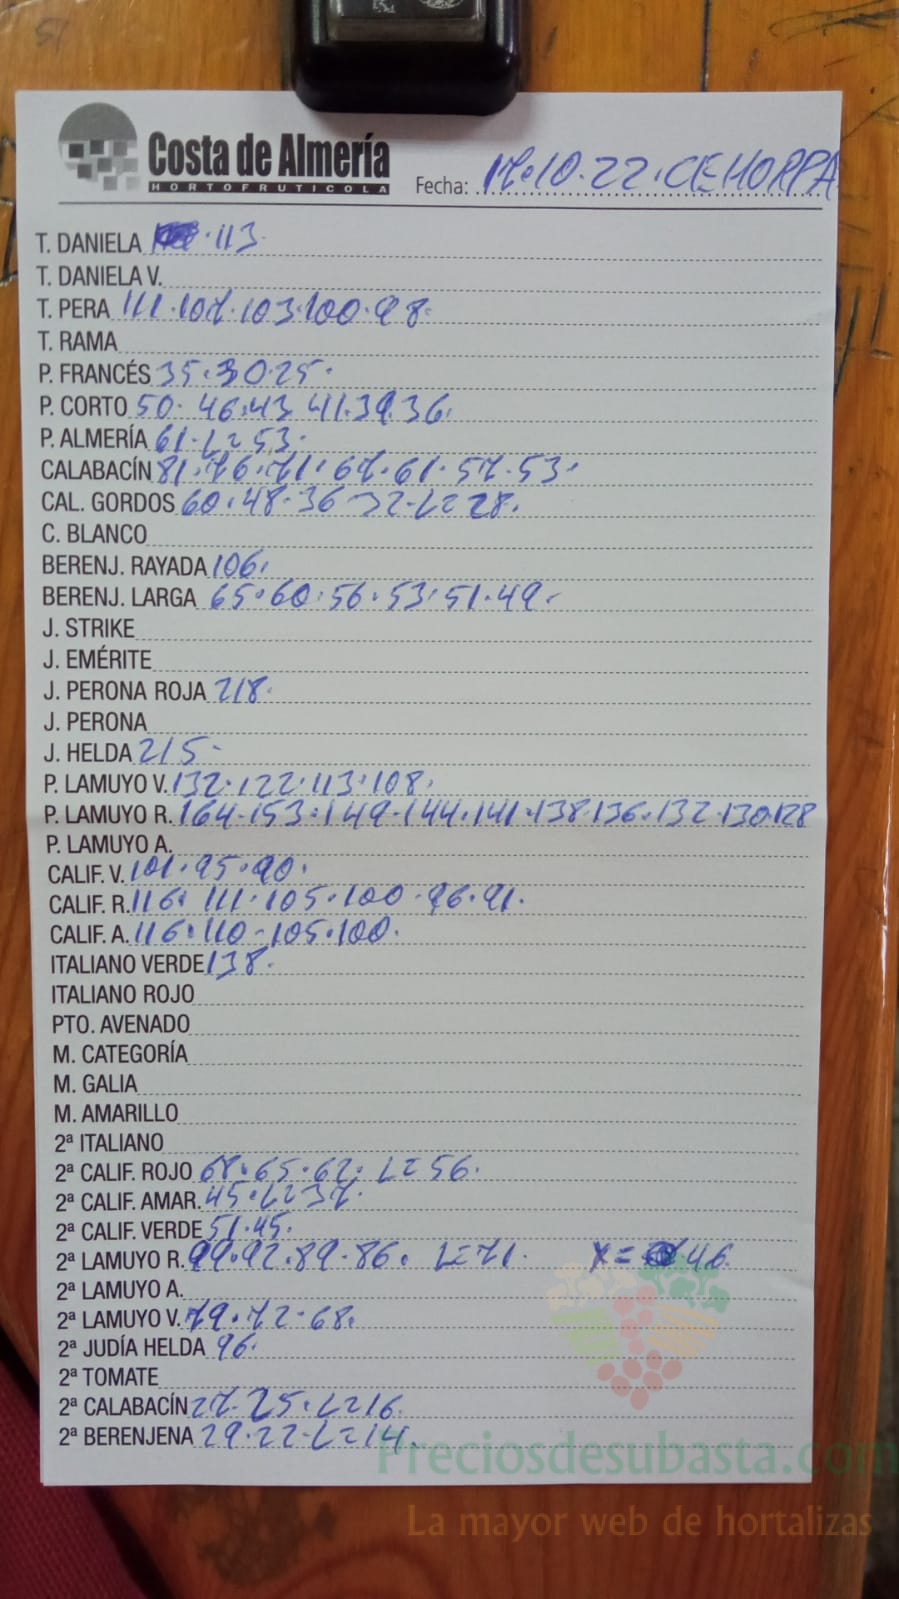 Costa de Almería
HORTOFRUTICOLA
Fecha: 17.10.22.CEHORPA
T. DANIELA 113.
T. DANIELA V.
T. PERA 111.107.103.100.98.
T. RAMA
P. FRANCÉS 35.30.25.
P. CORTO 50. 46.43 41.39.36.
P. ALMERÍA 61-L=53.
CALABACÍN 81.76.71.67.61.57.53.
CAL. GORDOS 60.48-36-32-L=28.
C. BLANCO
BERENJ. RAYADA 106.
BERENJ. LARGA 65.60.56.53.51.49-
J. STRIKE
J. EMÉRITE
J. PERONA ROJA 218.
J. PERONA
J. HELDA 215-
P. LAMUYO V. 132.122.113.108.
P. LAMUYO R. 164-153.149-144.141.138.136.132.130.128
P. LAMUYO A.
CALIF. V. 101.95.90.
CALIF. R. 116. 111.105.100.96.91.
CALIF. A. 116.110-105.100.
ITALIANO VERDE 138.
ITALIANO ROJO
PTO. AVENADO
M. CATEGORÍA
M. GALIA
M. AMARILLO
2ª ITALIANO
2ª CALIF. ROJO 68.65.62. L=56.
2ª CALIF. AMAR. 45.L=37.
2ª CALIF. VERDE 51.45.
2ª LAMUYO R. 99.92.89-86. L=71. X= 46.
2ª LAMUYO A.
2ª LAMUYO V. 79.72-68.
2ª JUDÍA HELDA 96.
2ª TOMATE
2ª CALABACÍN 27-25.L=16.
2ª BERENJENA 29.22-L=14.
Preciosdesubasta.com
La mayor web de hortalizas